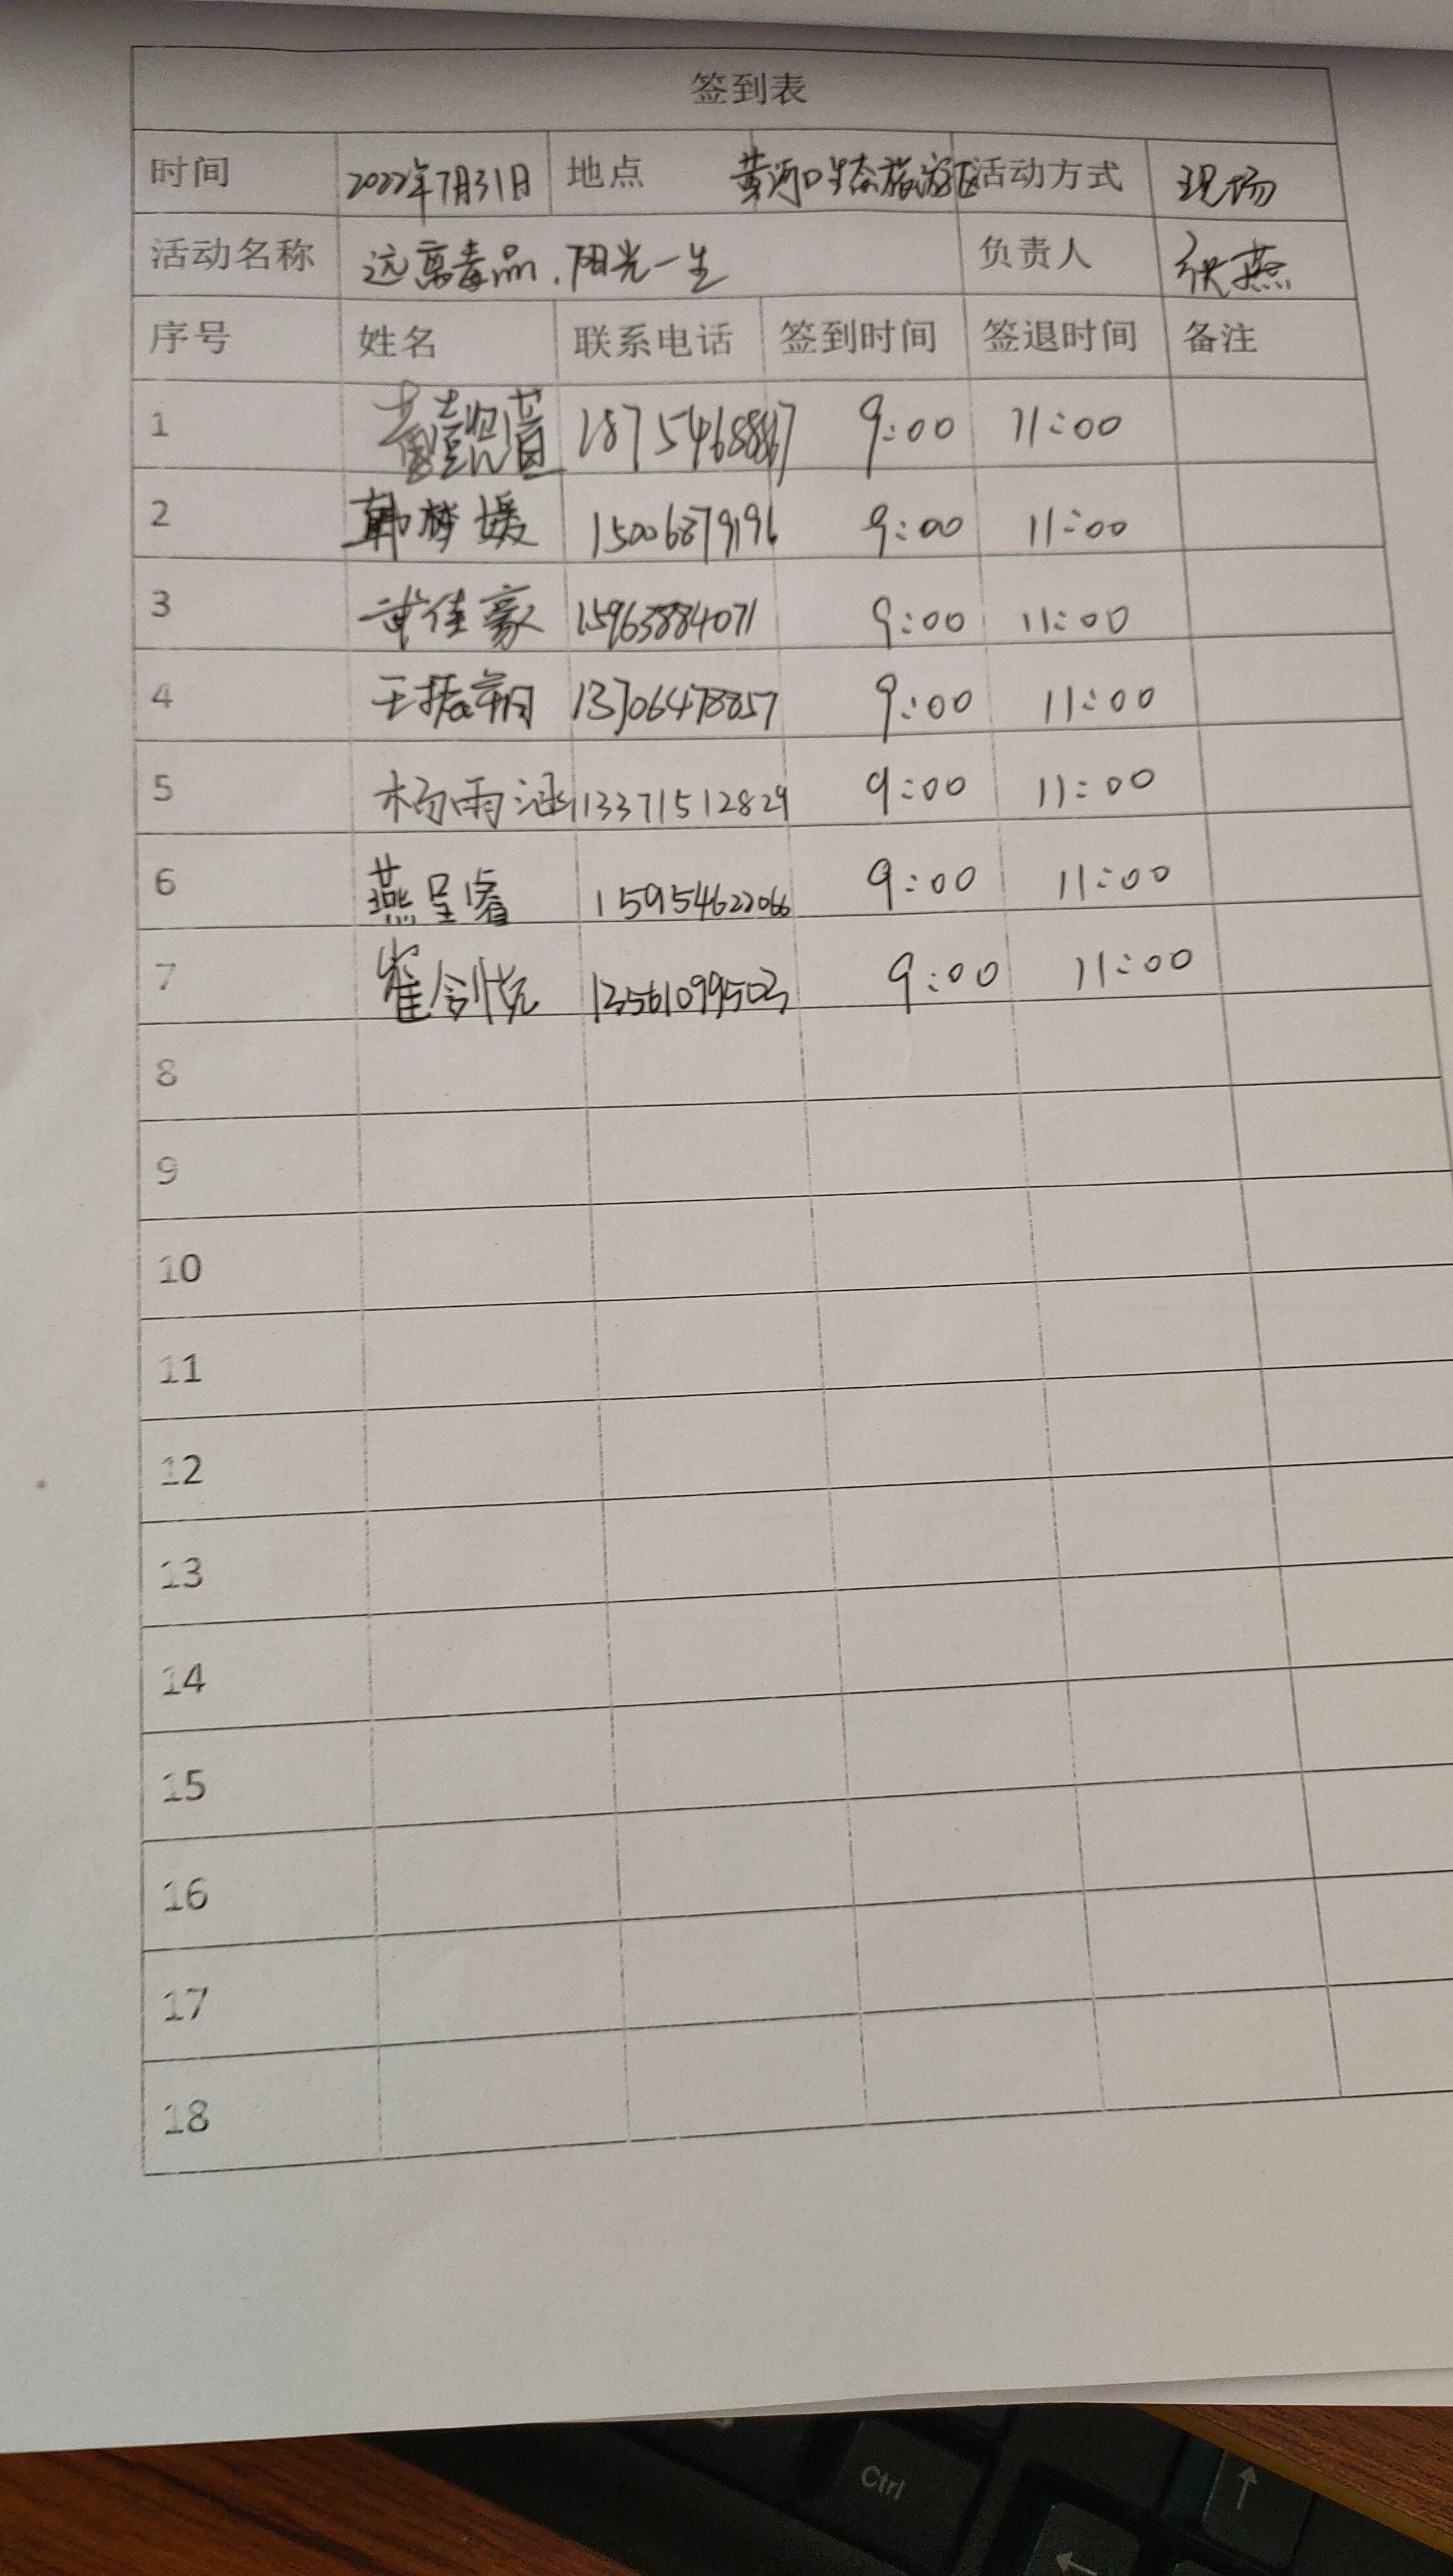 签到表
时间 2022年7月31日 地点 黄河口生态旅游区 活动方式 现场
活动名称 远离毒品.阳光一生 负责人 张燕
序号 姓名 联系电话 签到时间 签退时间 备注
1 9:00 11:00
2 韩梦媛 15006879196 9:00 11:00
3 武佳豪 15963884071 9:00 11:00
4 13706478857 9:00 11:00
5 杨雨涵 13371512829 9:00 11:00
6 燕呈睿 15954622066 9:00 11:00
7 13561099503 9:00 11:00
8
9
10
11
12
13
14
15
16
17
18
Ctrl